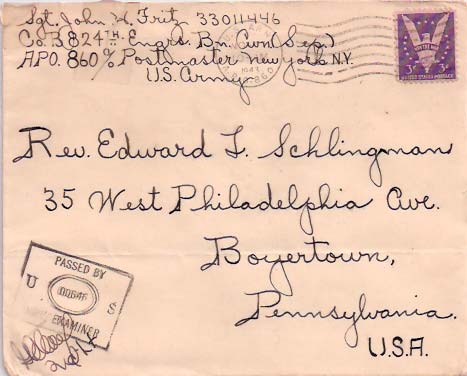 Sgt. John H. Fritz 33011446
Co. B 824TH. Engrs. Bn. Avn (Sep.)
APO. 860 % Postmaster New York N.Y.
U.S. Army
1943
WIN THE WAR
3¢ 3¢
UNITED STATES POSTAGE
Rev. Edward L. Schlingman
35 West Philadelphia Ave.
Boyertown,
Pennsylvania.
U.S.A.
PASSED BY
U S
EXAMINER